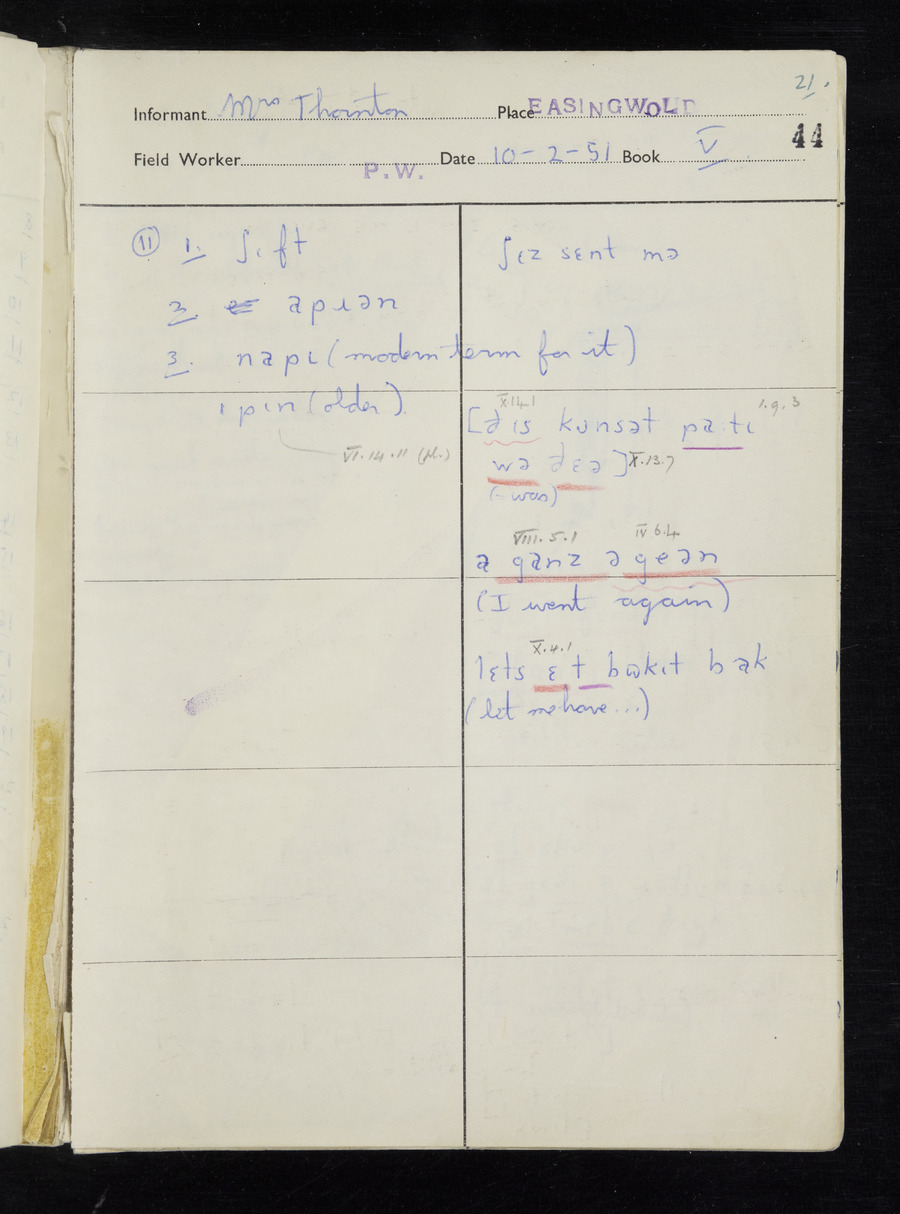 21.
Informant Mrs Thornton Place EASINGWOLD
44
Field Worker P.W. Date 10-2-51 Book V
⑪ 1. ʃɩft
2. apɩən
3. napɩ (modern term for it)
pɩn (older)
VI.14.11 (pl.)
ʃɛz sɛnt mə
X.14.1 1.9.3
[ðis kɷnsət pa:tɩ
wə ðɛə] X.13.7
(-was)
VIII.5.1 IV 6.4
a ganz əgeən
(I went again)
X.4.1
lɛts ɛ t bɷkɩt bak
(let me have ...)